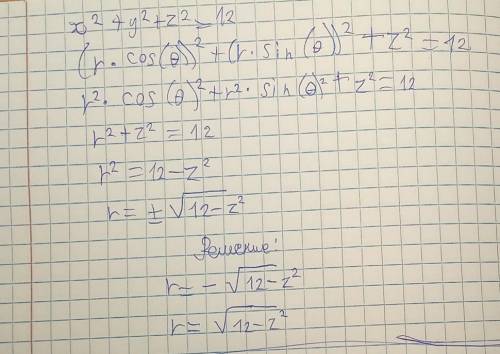 x² + y² + z² = 12
(r · cos(θ))² + (r · sin(θ))² + z² = 12
r² · cos(θ)² + r² · sin(θ)² + z² = 12
r² + z² = 12
r² = 12 - z²
r = ± √12 - z²
Решение:
r = - √12 - z²
r = √12 - z²